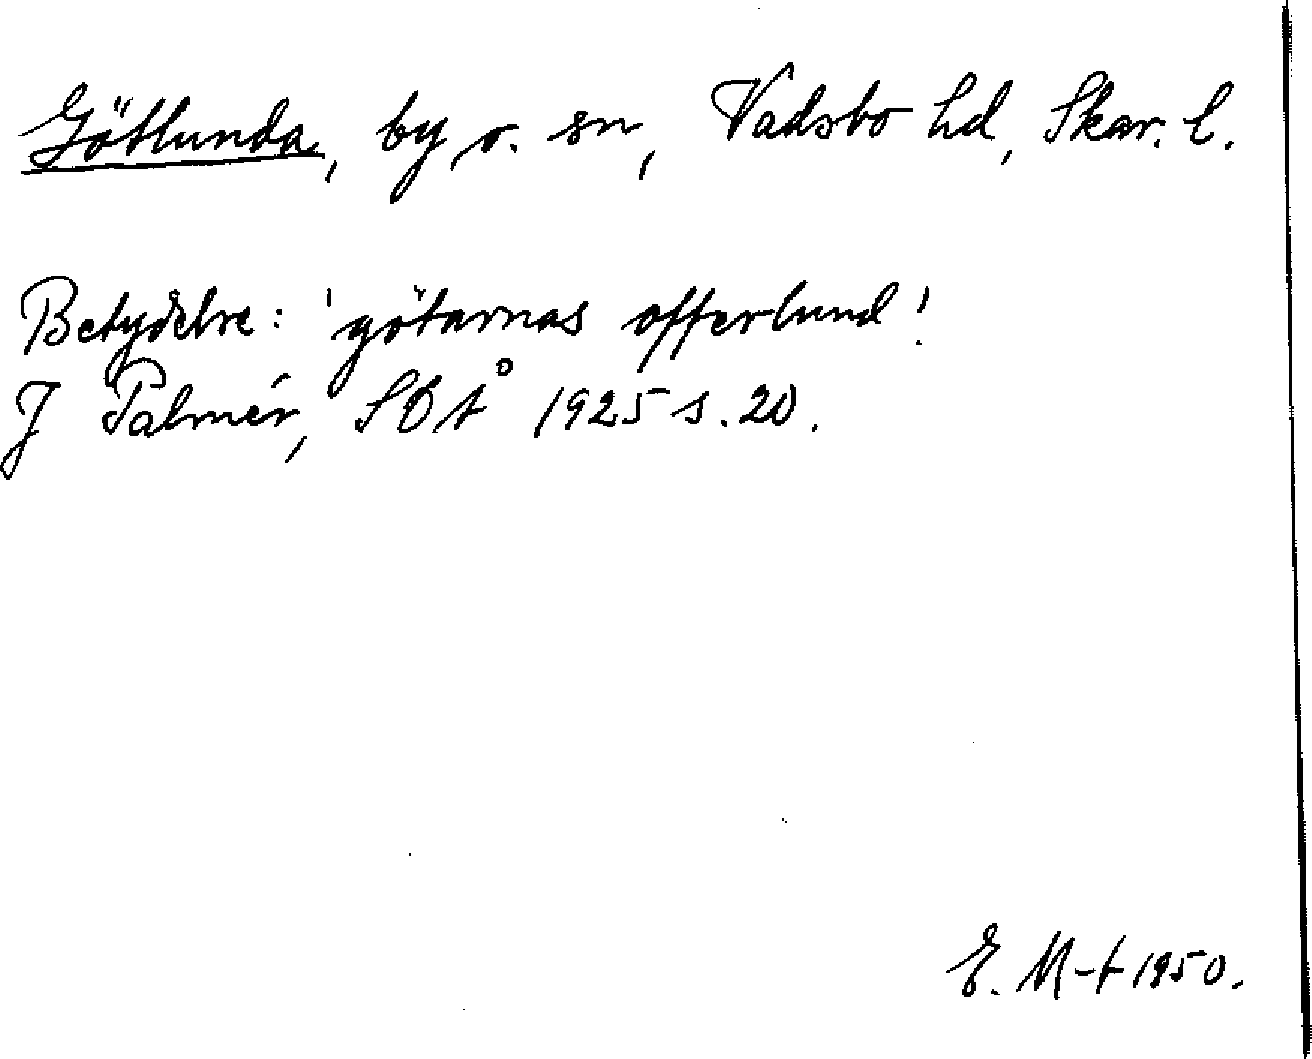 Götlunda, by o. sn, Vadsbo hd, Skar. l.
Betydelse: 'götarnas offerlund'.
J Palmér, SOÅ 1925 s. 20.
E. M-t 1950.